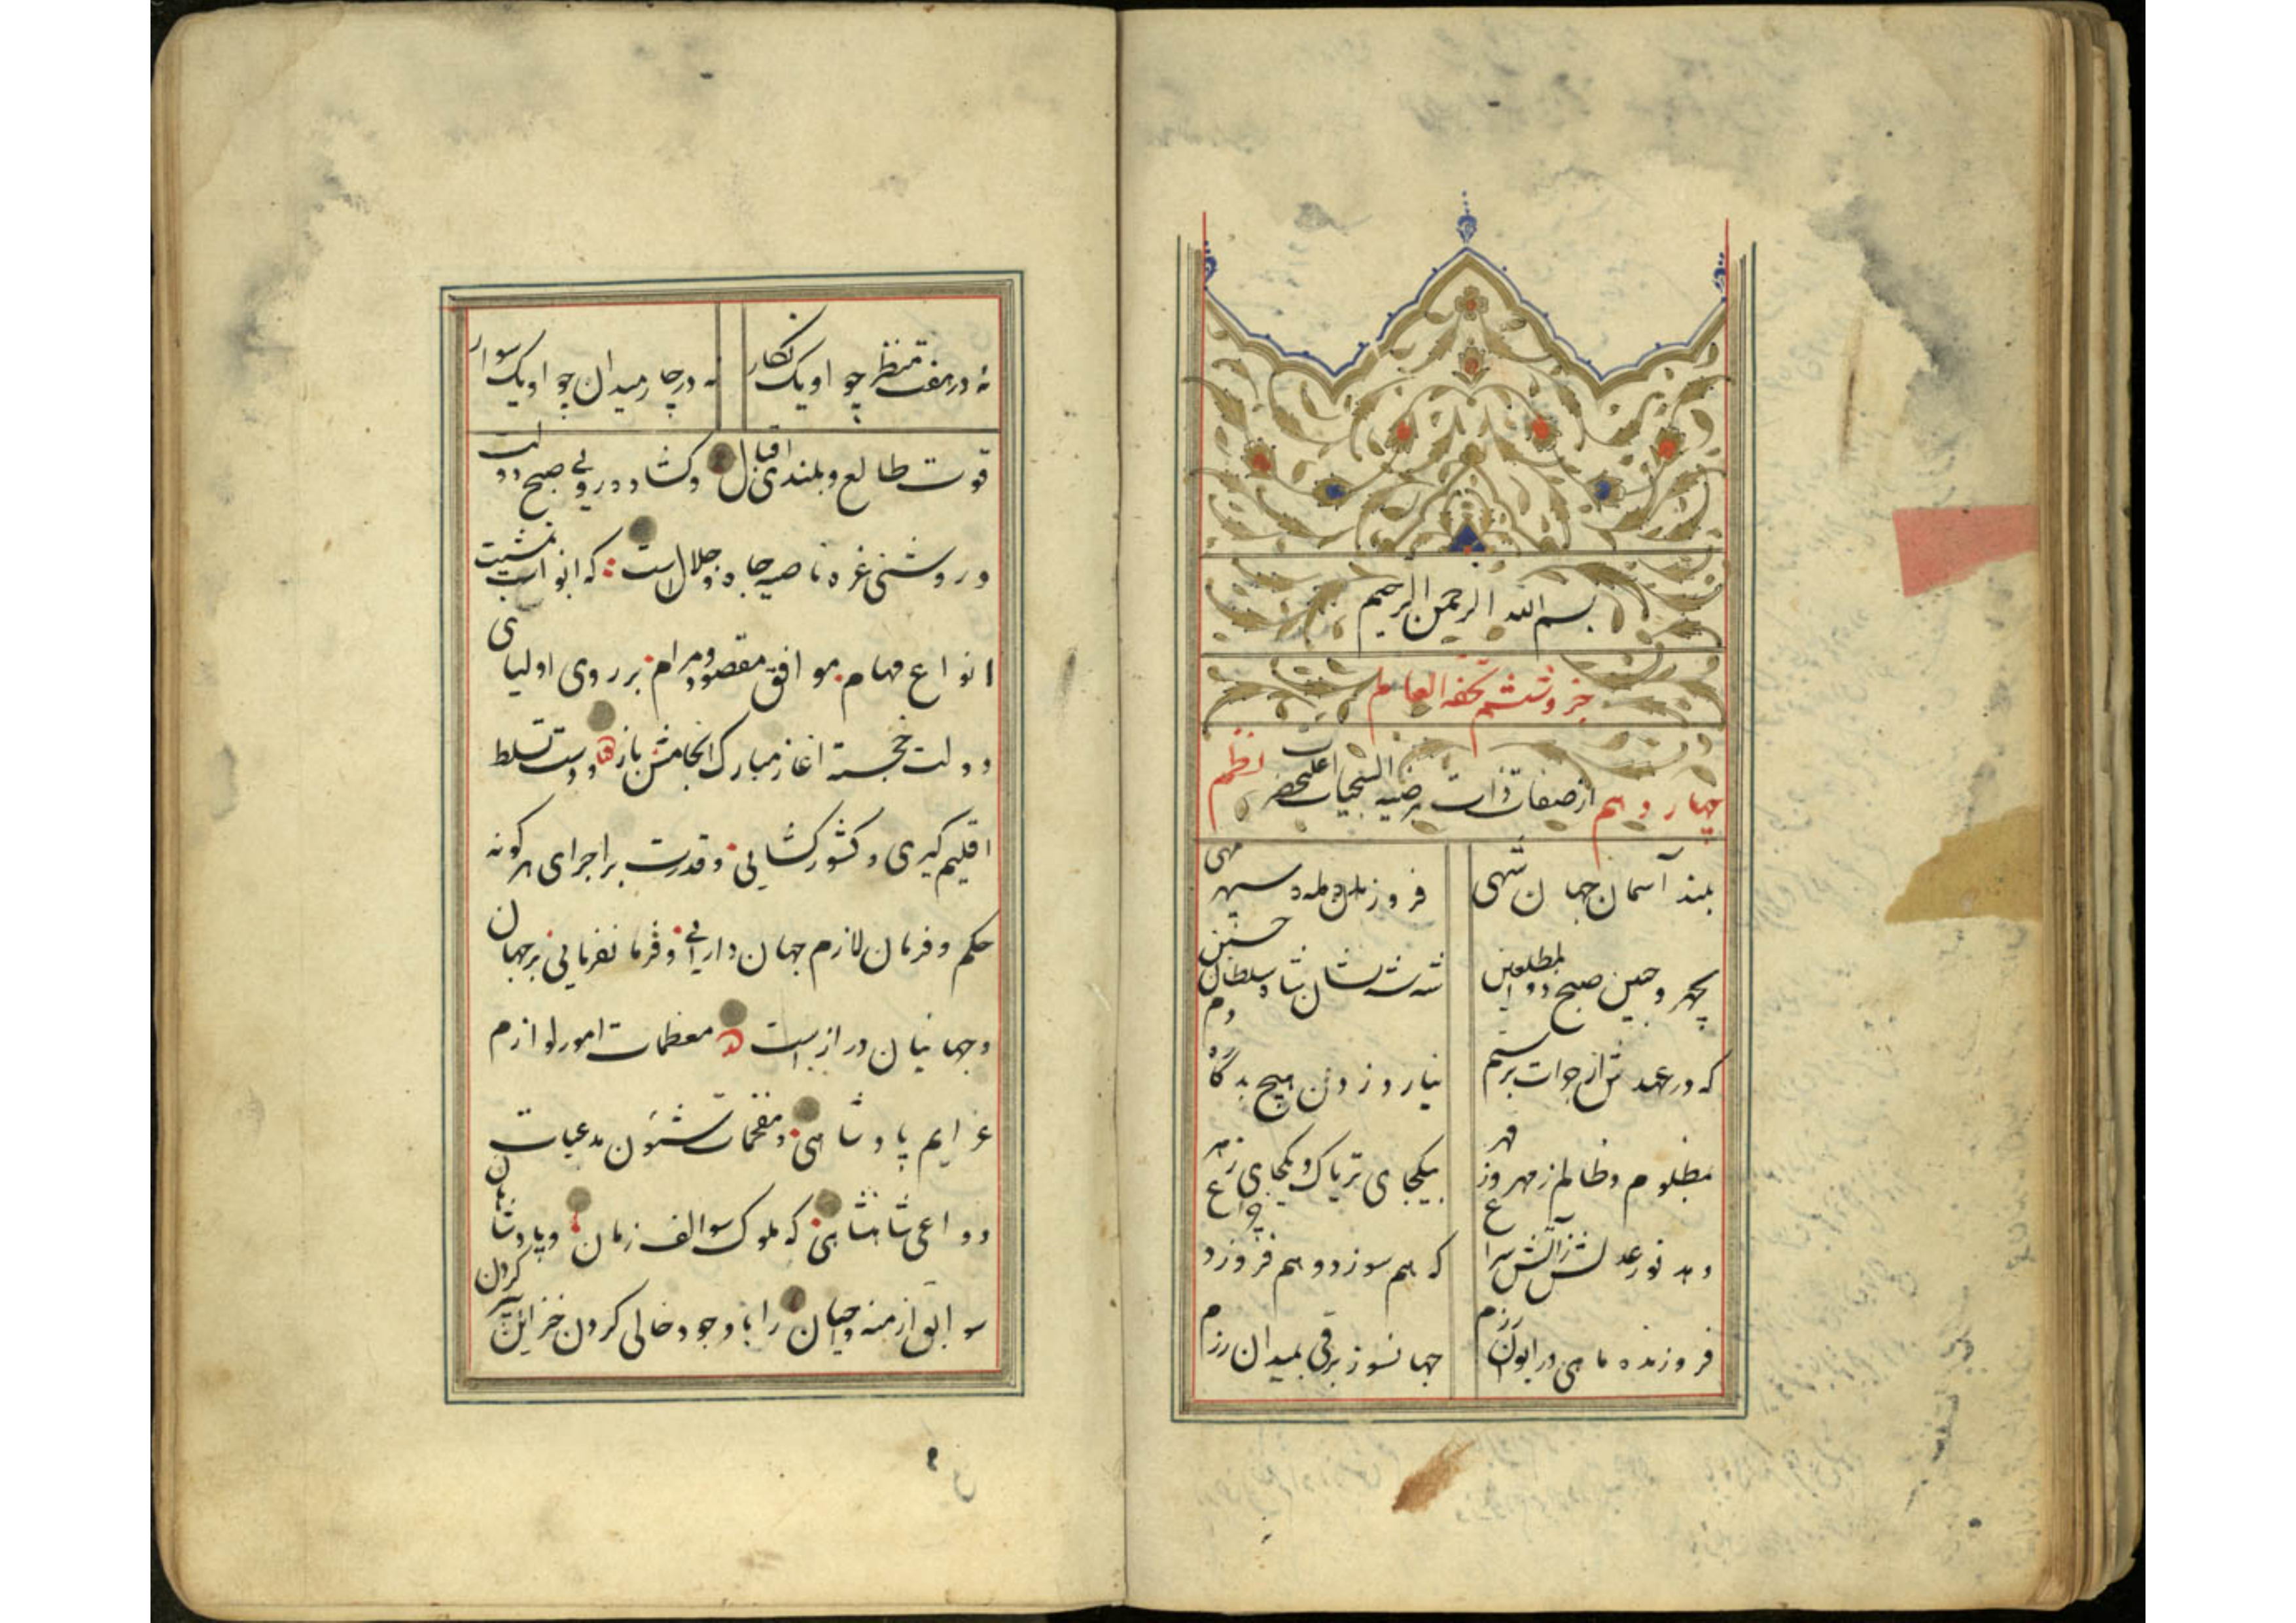 بسم الله الرحمن الرحیم
جزو ششم تحفه العالم
چهاردهم از صفات ذات مرضیه السجیات اعلیحضرت نظم
بلند آسمان جهان شهی
فروزان مه سپهر مهی
بچهر و جبین صبح دولت مطلعین
شه شه نشان شاه سلطان حسین
که در عهدش از جرات بر ستم
نیارد زدن هیچ بدگاه دم
مظلوم و ظالم ز مهر و ز قهر
بیکجای تریاک و یکجای زهر
دهد نور عدلش ز آتش سراغ
که هم سوزد و هم فروزد چراغ
فروزنده ماهی در ایوان بزم
جهانسوز برقی بمیدان رزم
نه در هفت منظر چو او یک نگار
نه در چار میدان چو او یک سوار
قوت طالع و بلندی اقبال و گشاده رویی صبح دولت
و روشنی غره ناصیه جاه و جلال است که ابواب تمشیت
انواع مهام موافق مقصود و مرام بر روی اولیای
دولت خجسته اغاز مبارک انجامش باز و دست تسلط
اقلیم گیری و کشور گشایی و قدرت بر اجرای هر گونه
حکم و فرمان لازم جهان دارایی و فرمانفرمایی بر جهان
و جهانیان دراز است معظمات امور لوازم
عزایم پادشاهی و مفخمات شئون مدعیات
دواعی شاهنشاهی که ملوک سوالف زمان و پادشاهان
سوابق ازمنه و احیان را با وجود خالی کردن خزاین پر کردن